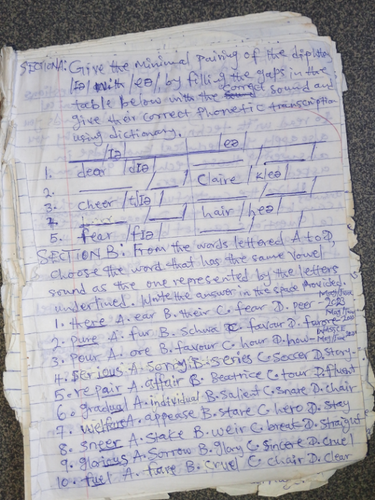 SECTION A: Give the Minimal pairing of the diphthong
/ɪə/ with /eə/, by filling the gaps in the
table below with the correct sound and
give their correct phonetic transcription
using dictionary.
/ɪə/ /eə/
1. dear /dɪə/ ___ /___/
2. ___ /___/ Claire /kleə/
3. cheer /tʃɪə/ ___ /___/
4. ___ /___/ hair /heə/
5. fear /fɪə/ ___ /___/
SECTION B: From the words lettered A to D,
choose the word that has the same vowel
sound as the one represented by the letters
underlined. Write the answer in the space provided.
1. there A. ear B. their C. fear D. peer -
2. pure A. fur B. Schwa C. favour D. furore
3. pour A. ore B. favour C. hour D. how -
4. serious A. Sorry B. series C. Soccer D. story -
5. repair A. affair B. Beatrice C. tour D. fluent
6. gradual A. individual B. Salient C. sinate D. chair
7. welfare A. appease B. stare C. here D. Stay
8. sneer A. stake B. weir C. break D. Straight
9. glorious A. Sorrow B. glory C. sincere D. Cruel
10. fuel A. fare B. Cruel C. chair D. Clear